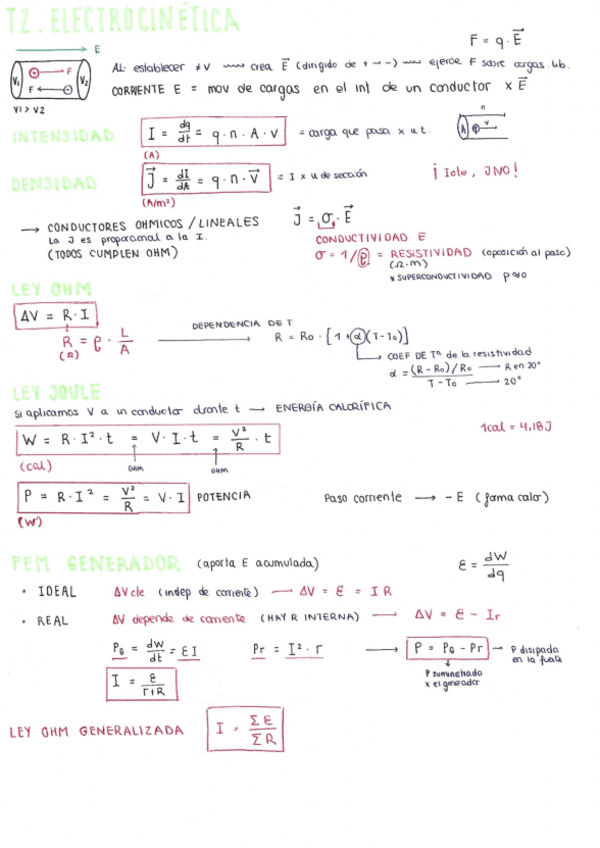 T2. ELECTROCINÉTICA
F = q · E⃗
E
V₁ F F V₂
V1 > V2
AL establecer ≠V → crea E⃗ (dirigido de + → -) → ejerce F sobre cargas lib.
CORRIENTE E = mov de cargas en el int de un conductor x E⃗
INTENSIDAD
I = dq/dt = q · n · A · v = carga que pasa x u t.
(A)
n
A v
DENSIDAD
J⃗ = dI/dA = q · n · V⃗ = I x u de sección
(A/m²)
¡ I cte, J NO!
→ CONDUCTORES OHMICOS / LINEALES
La J es proporcional a la I.
(TODOS CUMPLEN OHM)
J⃗ = σ · E⃗
CONDUCTIVIDAD E
σ = 1/ρ = RESISTIVIDAD (oposición al paso)
(Ω·m)
* SUPERCONDUCTIVIDAD ρ≈0
LEY OHM
ΔV = R · I
R = ρ · L/A
(Ω)
DEPENDENCIA DE T
R = Ro · [1 + α(T-To)]
COEF DE Tª de la resistividad
α = (R - Ro) / Ro → R en 20°
T - To → 20°
LEY JOULE
Si aplicamos V a un conductor dronte t → ENERGÍA CALORÍFICA
W = R · I² · t = V · I · t = V²/R · t
(cal) OHM OHM
1cal = 4,18J
P = R · I² = V²/R = V · I POTENCIA
(W)
Paso corriente → - E (forma calor)
FEM GENERADOR (aporta E acumulada)
ε = dW/dq
• IDEAL ΔV cte (indep de corriente) → ΔV = ε = I R
• REAL ΔV depende de corriente (HAY R INTERNA) → ΔV = ε - Ir
PG = dW/dt = εI Pr = I² · r → P = PG - Pr → P disipada en la fuente
P suministrada
x el generador
I = ε/r+R
LEY OHM GENERALIZADA I = Σε/ΣR